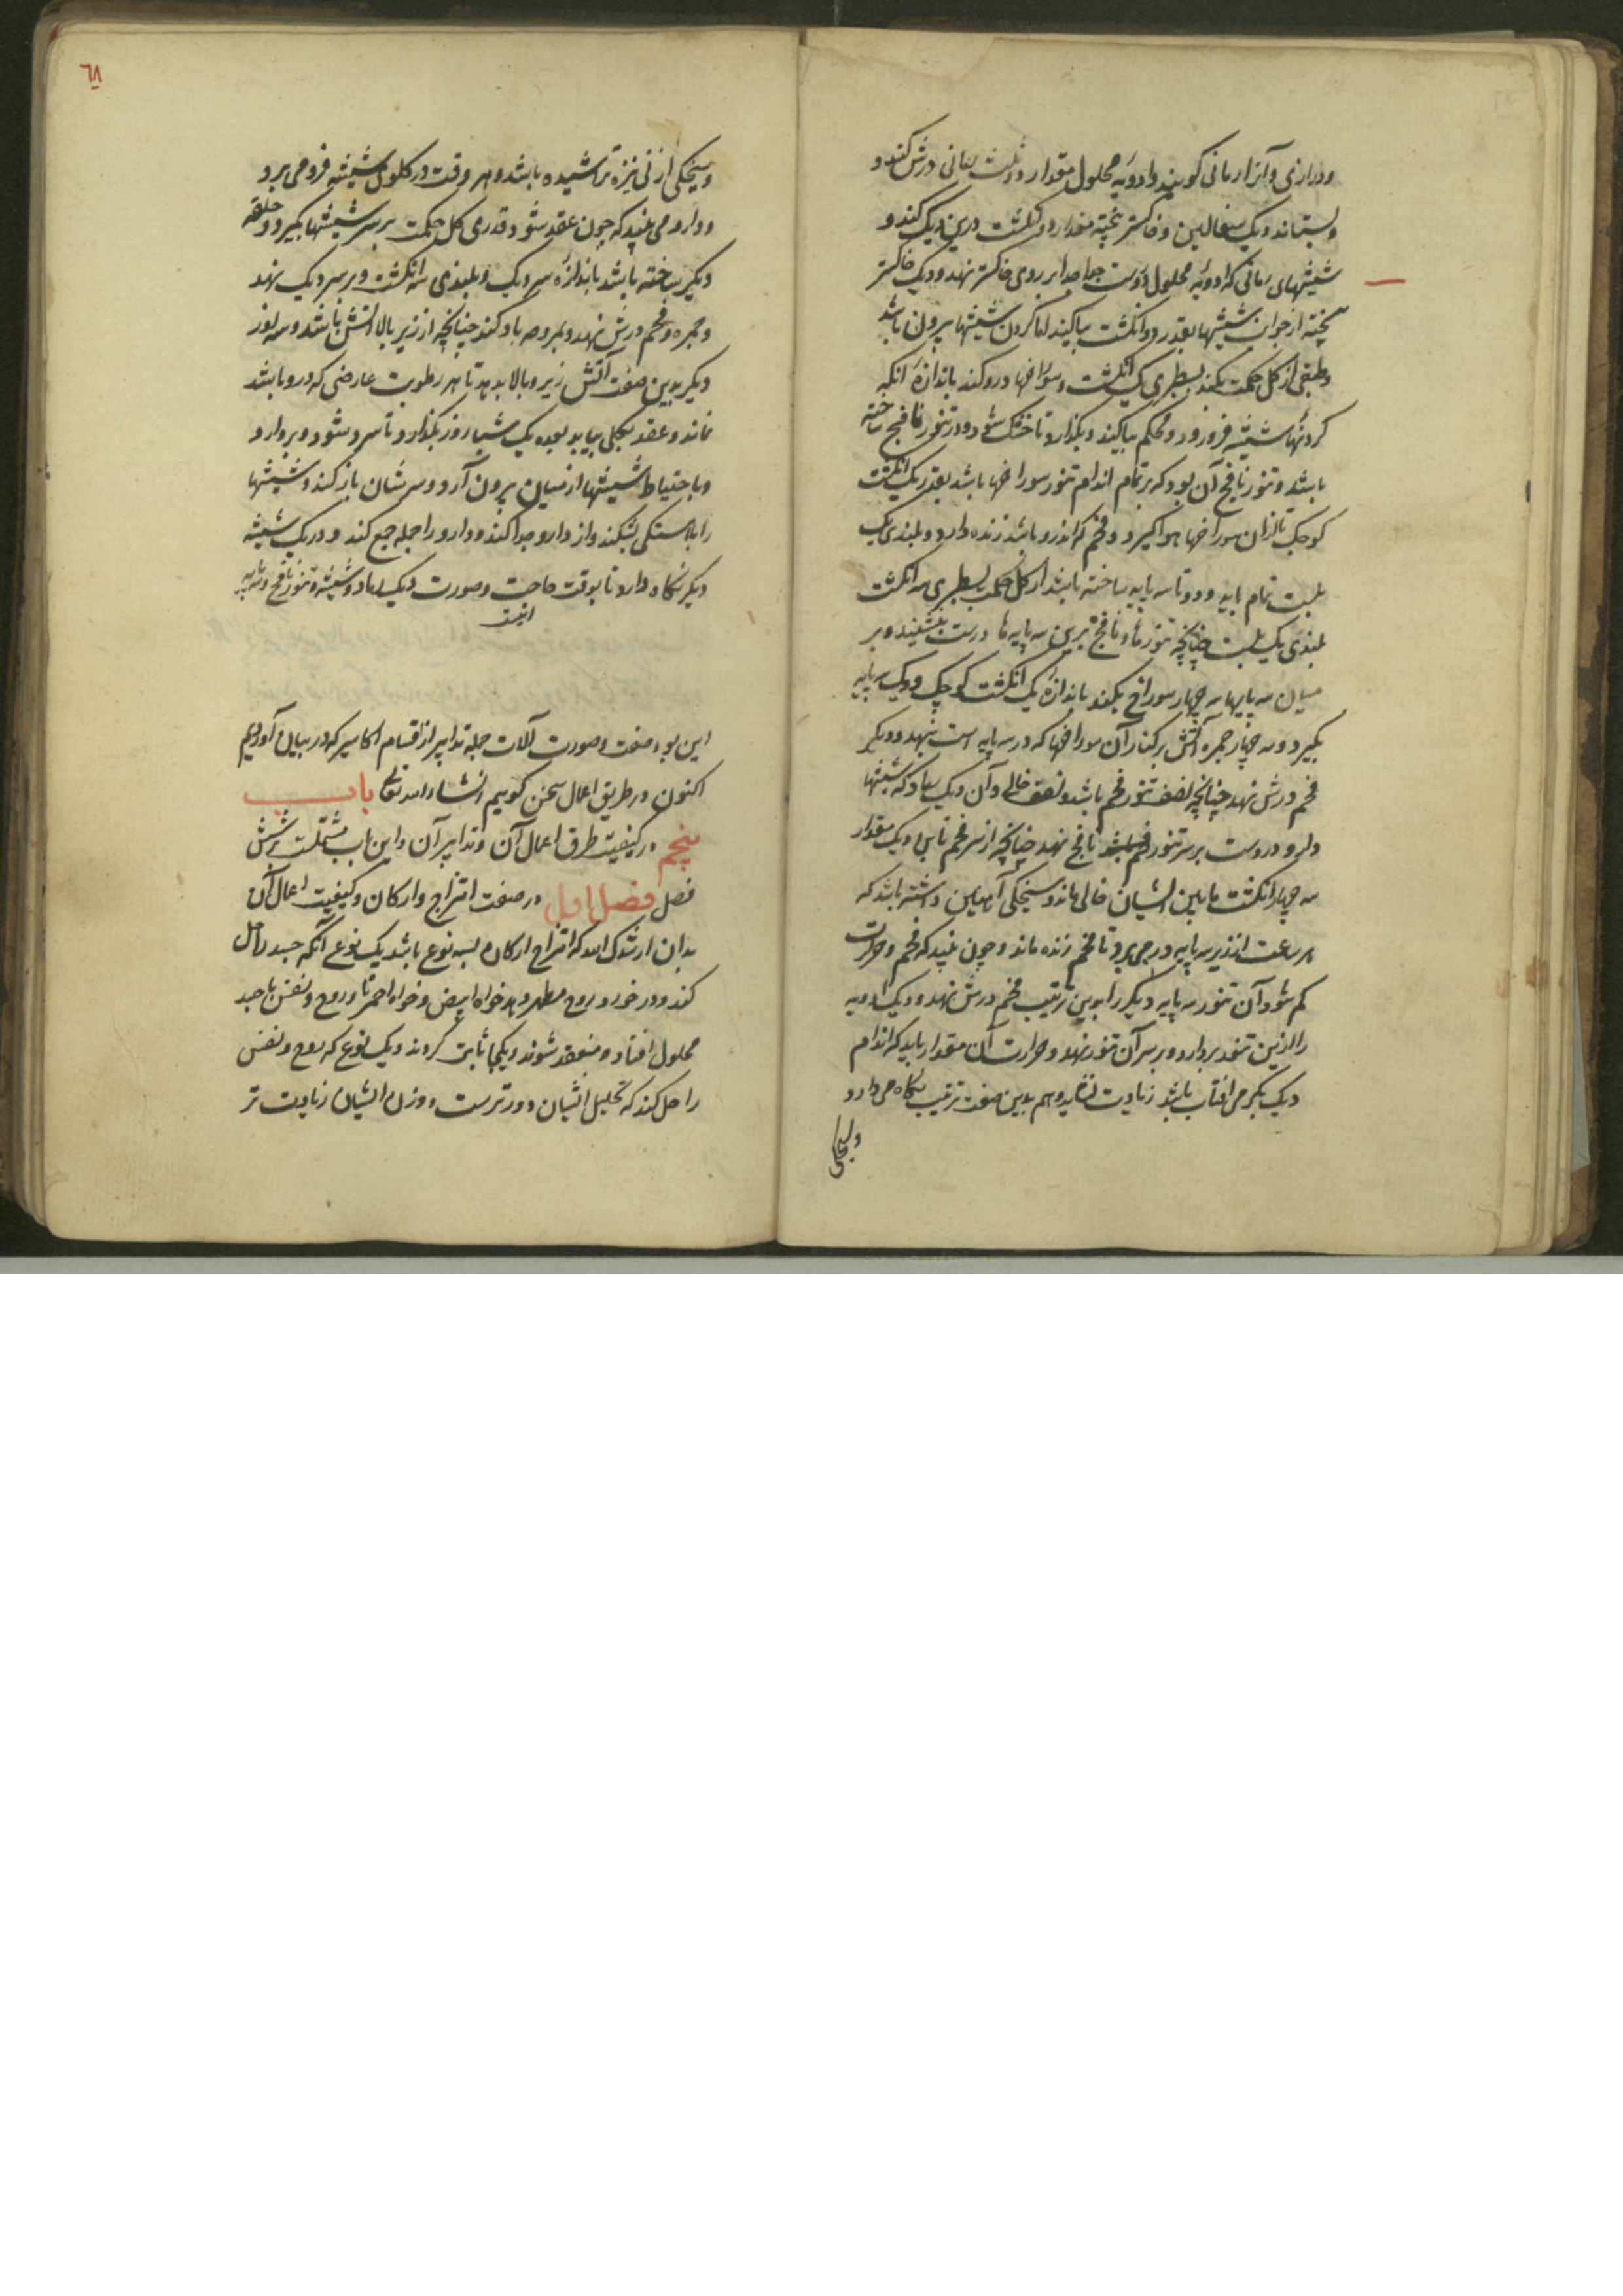 و درازی و آنرا رمانی کویند و ادویه محلول مقدار دو ثلث رمانی درش کند و
و بستاند دیک سفالین و خاکستر پخته مقدار دو انکشت درین دیک کند و
شیشهای رمانی که ادویه محلول دروست جدا جدا بر روی خاکستر نهد و دیک خاکستر
پخته از جوانب شیشها بقدر دو انکشت بیاکند اما کردن شیشها بیرون باشد
و طبقی از کل حکمت بکند بسطبری یک انکشت و سوراخها درو کند باندازه انکه
کردنهاء شیشه فرو رود و محکم بیاکند و بکذارد تا خشک شود و در تنور نافخ ساخته
باشد و تنور نافخ آن بود که بر تمام اندام تنور سوراخها باشد بقدر یک انکشت
کوچک تا ازان سوراخها هوا کیرد و فحم که اندرو باشد زنده دارد و بلندی یک
بلست تمام باید و دو تا سه پایه ساخته باشد از کل حکمت بسطبری سه انکشت
بلندی یک بلست چنانچه تنورهاء نافخ برین سه پایه ها درست بنشیند و بر
میان سه پایها سه چهار سوراخ بکند باندازه یک انکشت کوچک و یک سه پایه
بکیرد و سه چهار جمره آتش بر کنار آن سوراخها که در سه پایه است بنهد و دیکر
فحم درش نهد چنانچه نصف تنور فحم باشد و نصف خالی و آن دیک رماد که شیشها
دارو دروست بر سر تنور نافخ نهد چنانچه از سر فحم تا بن دیک مقدار
سه چهار انکشت مابین ایشان خالی ماند و سیخکی آهنین داشته باشد که
هر ساعت از زیر سه پایه در می برد تا فحم زنده ماند و چون بیند که فحم و حرارت
کم شود آن تنور سه پایه دیکر را بدین ترتیب فحم درش نهد و دیک ادویه
را ازین تنور بردارد و بر سر آن تنور نهد و حرارت آن مقدار باید که اندام
دیک بکرمی افتاب باشد زیادت نشاید و هم بدین صفت ترتیب نکاه می دارد
و سیخکی از نی نیزه تراشیده باشد و هر وقت در کلوی شیشه فرو می برد
و دارو می بیند که چون عقد شود قدری کل حکمت بر سر شیشها بکیرد و حلقه
دیکر ساخته باشد باندازه سر دیک و بلندی سه انکشت و بر سر دیک نهد
و جمره و فحم درش نهد و بمروحه باد کند چنانچه از زیر بالا آتش باشد و سه روز
دیکر بدین صفت آتش زیر و بالا بدهد تا هر رطوبت عارضی که درو باشد
نماند و عقد بکلی بیابد بعده یک شبا روز بکذارد تا سرد شود و بردارد
و باحتیاط شیشها از میان بیرون آرد و سر شان باز کند و شیشها
را باهستکی بشکند و از دارو جدا کند و دارو را جمله جمع کند و در یک شیشه
دیکر نکاه دارد تا بوقت حاجت و صورت دیک رماد و شیشه و تنور نافخ و سه پایه
اینست
این بود صفت و صورت آلات جمله تدابیر از اقسام اکاسیر که در بیان آوردیم
اکنون در طریق اعمال سخن کوییم انشاء الله تعالی باب
پنجم در کیفیت طرق اعمال آن و تدابیر آن و این باب مشتملست بر شش
فصل فصل اول در صفت امتزاج و ارکان و کیفیت اعمال آن
بدان ارشدک الله که امتزاج ارکان بسه نوع باشد یک نوع آنکه جسد را حل
کند و در خورد روح مطهر دهد خواه ابیض و خواه احمر تا روح و نفس با جسد
محلول افتاده منعقد شوند و یکجا ثابت کردند و یک نوع که روح و نفس
را حل کند که تحلیل ایشان زودترست و وزن ایشان زیادت تر